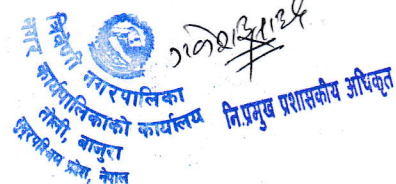 त्रिवेणी नगरपालिका
नगर कार्यपालिकाको कार्यालय
तोली, बाजुरा
सुदूरपश्चिम प्रदेश, नेपाल
नि.प्रमुख प्रशासकीय अधिकृत